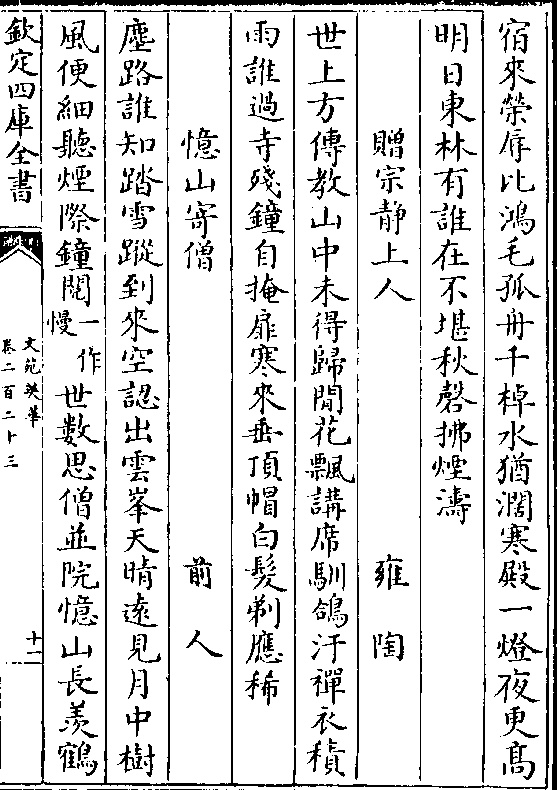 宿來榮辱比鴻毛孤舟千棹水猶濶寒殿一燈夜更髙
明日東林有誰在不堪秋磬拂煙濤
贈宗静上人 雍陶
世上方傳教山中未得歸閒花飄講席馴鴿汙禪衣積
雨誰過寺殘鐘自掩扉寒來垂頂帽白髮剃應稀
憶山寄僧 前人
塵路誰知踏雪蹤到來空認出雲峯天晴遠見月中樹
風便細聽煙際鐘閲一作慢世數思僧並院憶山長羡鶴
欽定四庫全書
文苑英華
卷二百二十三
十一